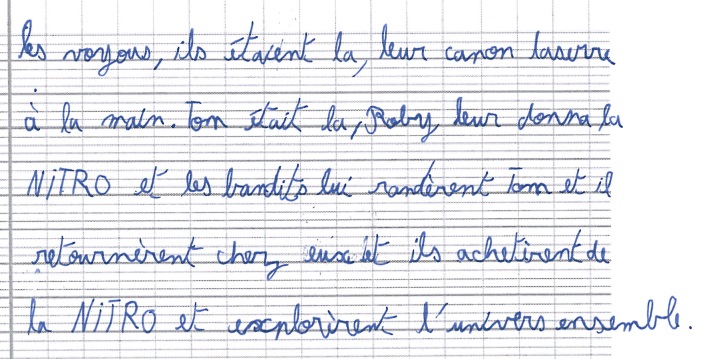 les voyous, ils étaient la, leur canon laserre
à la main. Tom était la, Roby leur donna la
NiTRO et les bandits lui randèrent Tom et il
retournèrent chez euxe et ils achetirent de
la NiTRO et explorirent l'univers ensemble.